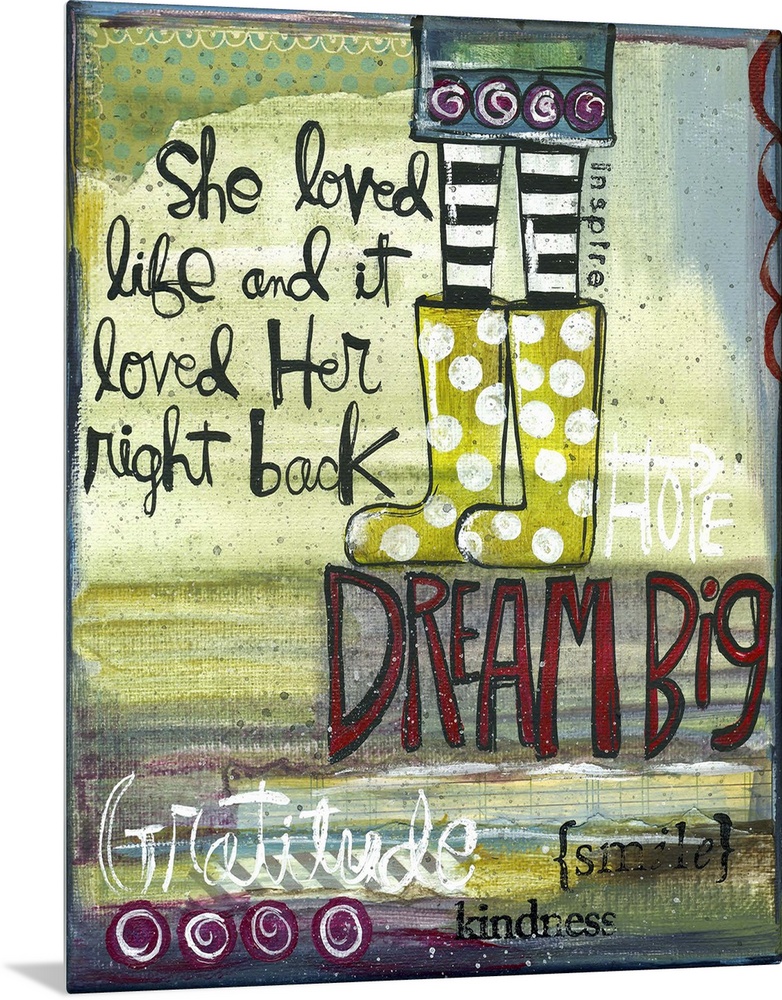 She loved
life and it
loved Her
right back
inspire
HOPE
DREAM BIG
Gratitude
{smile}
kindness